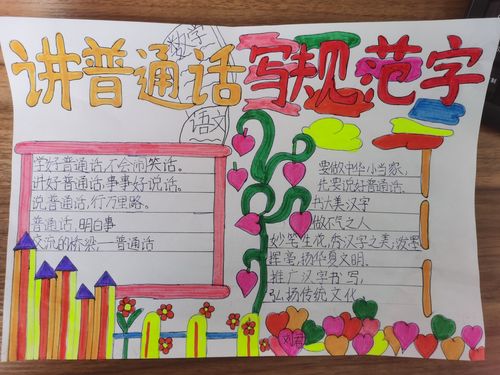 讲普通话 写规范字
数学
语文
学好普通话,不会闹笑话。
讲好普通话,事事好说话。
说普通话,行万里路。
普通话,明白事
交流的桥梁,—普通话
要做中华小当家,
先要说好普通话.
书大美汉字
做不气之人
妙笔生花,秀汉字之美;泼墨
挥毫,扬华夏文明.
推广汉字书写,
弘扬传统文化。